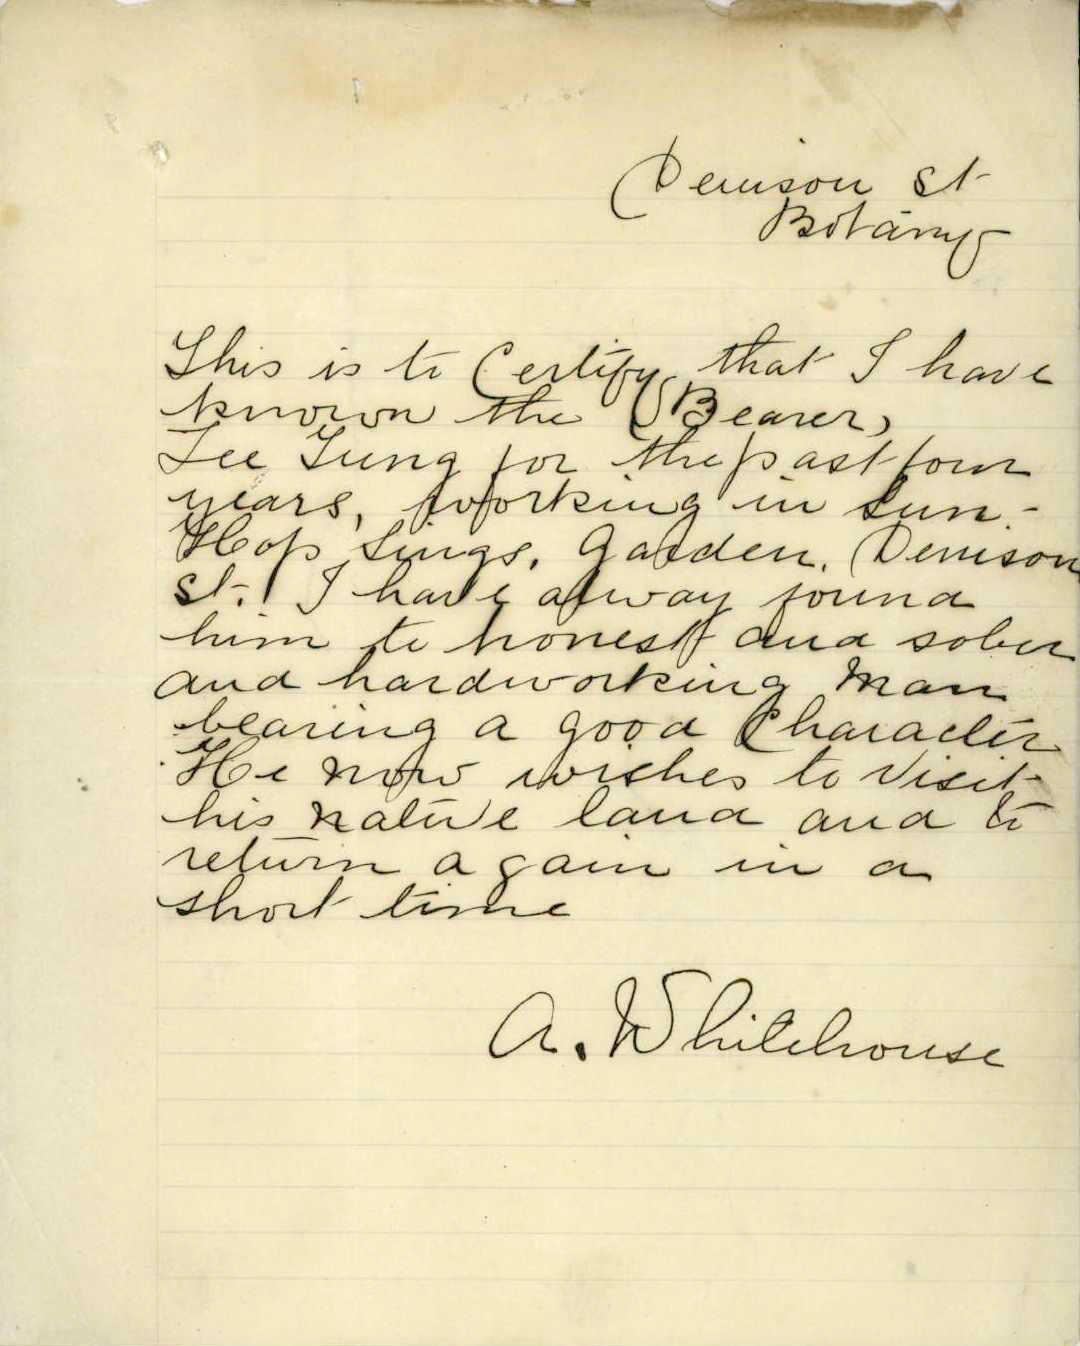 Denison St
Botany
This is to Certify that I have
known the Bearer,
Lee Gung for the past four
years, working in Sun.-
Hop Sings, Garden, Denison
St. I have alway found
him to honest and sober
and hardworking man
bearing a good Character
He now wishes to visit
his native land and to
return again in a
short time
A. Whitehouse